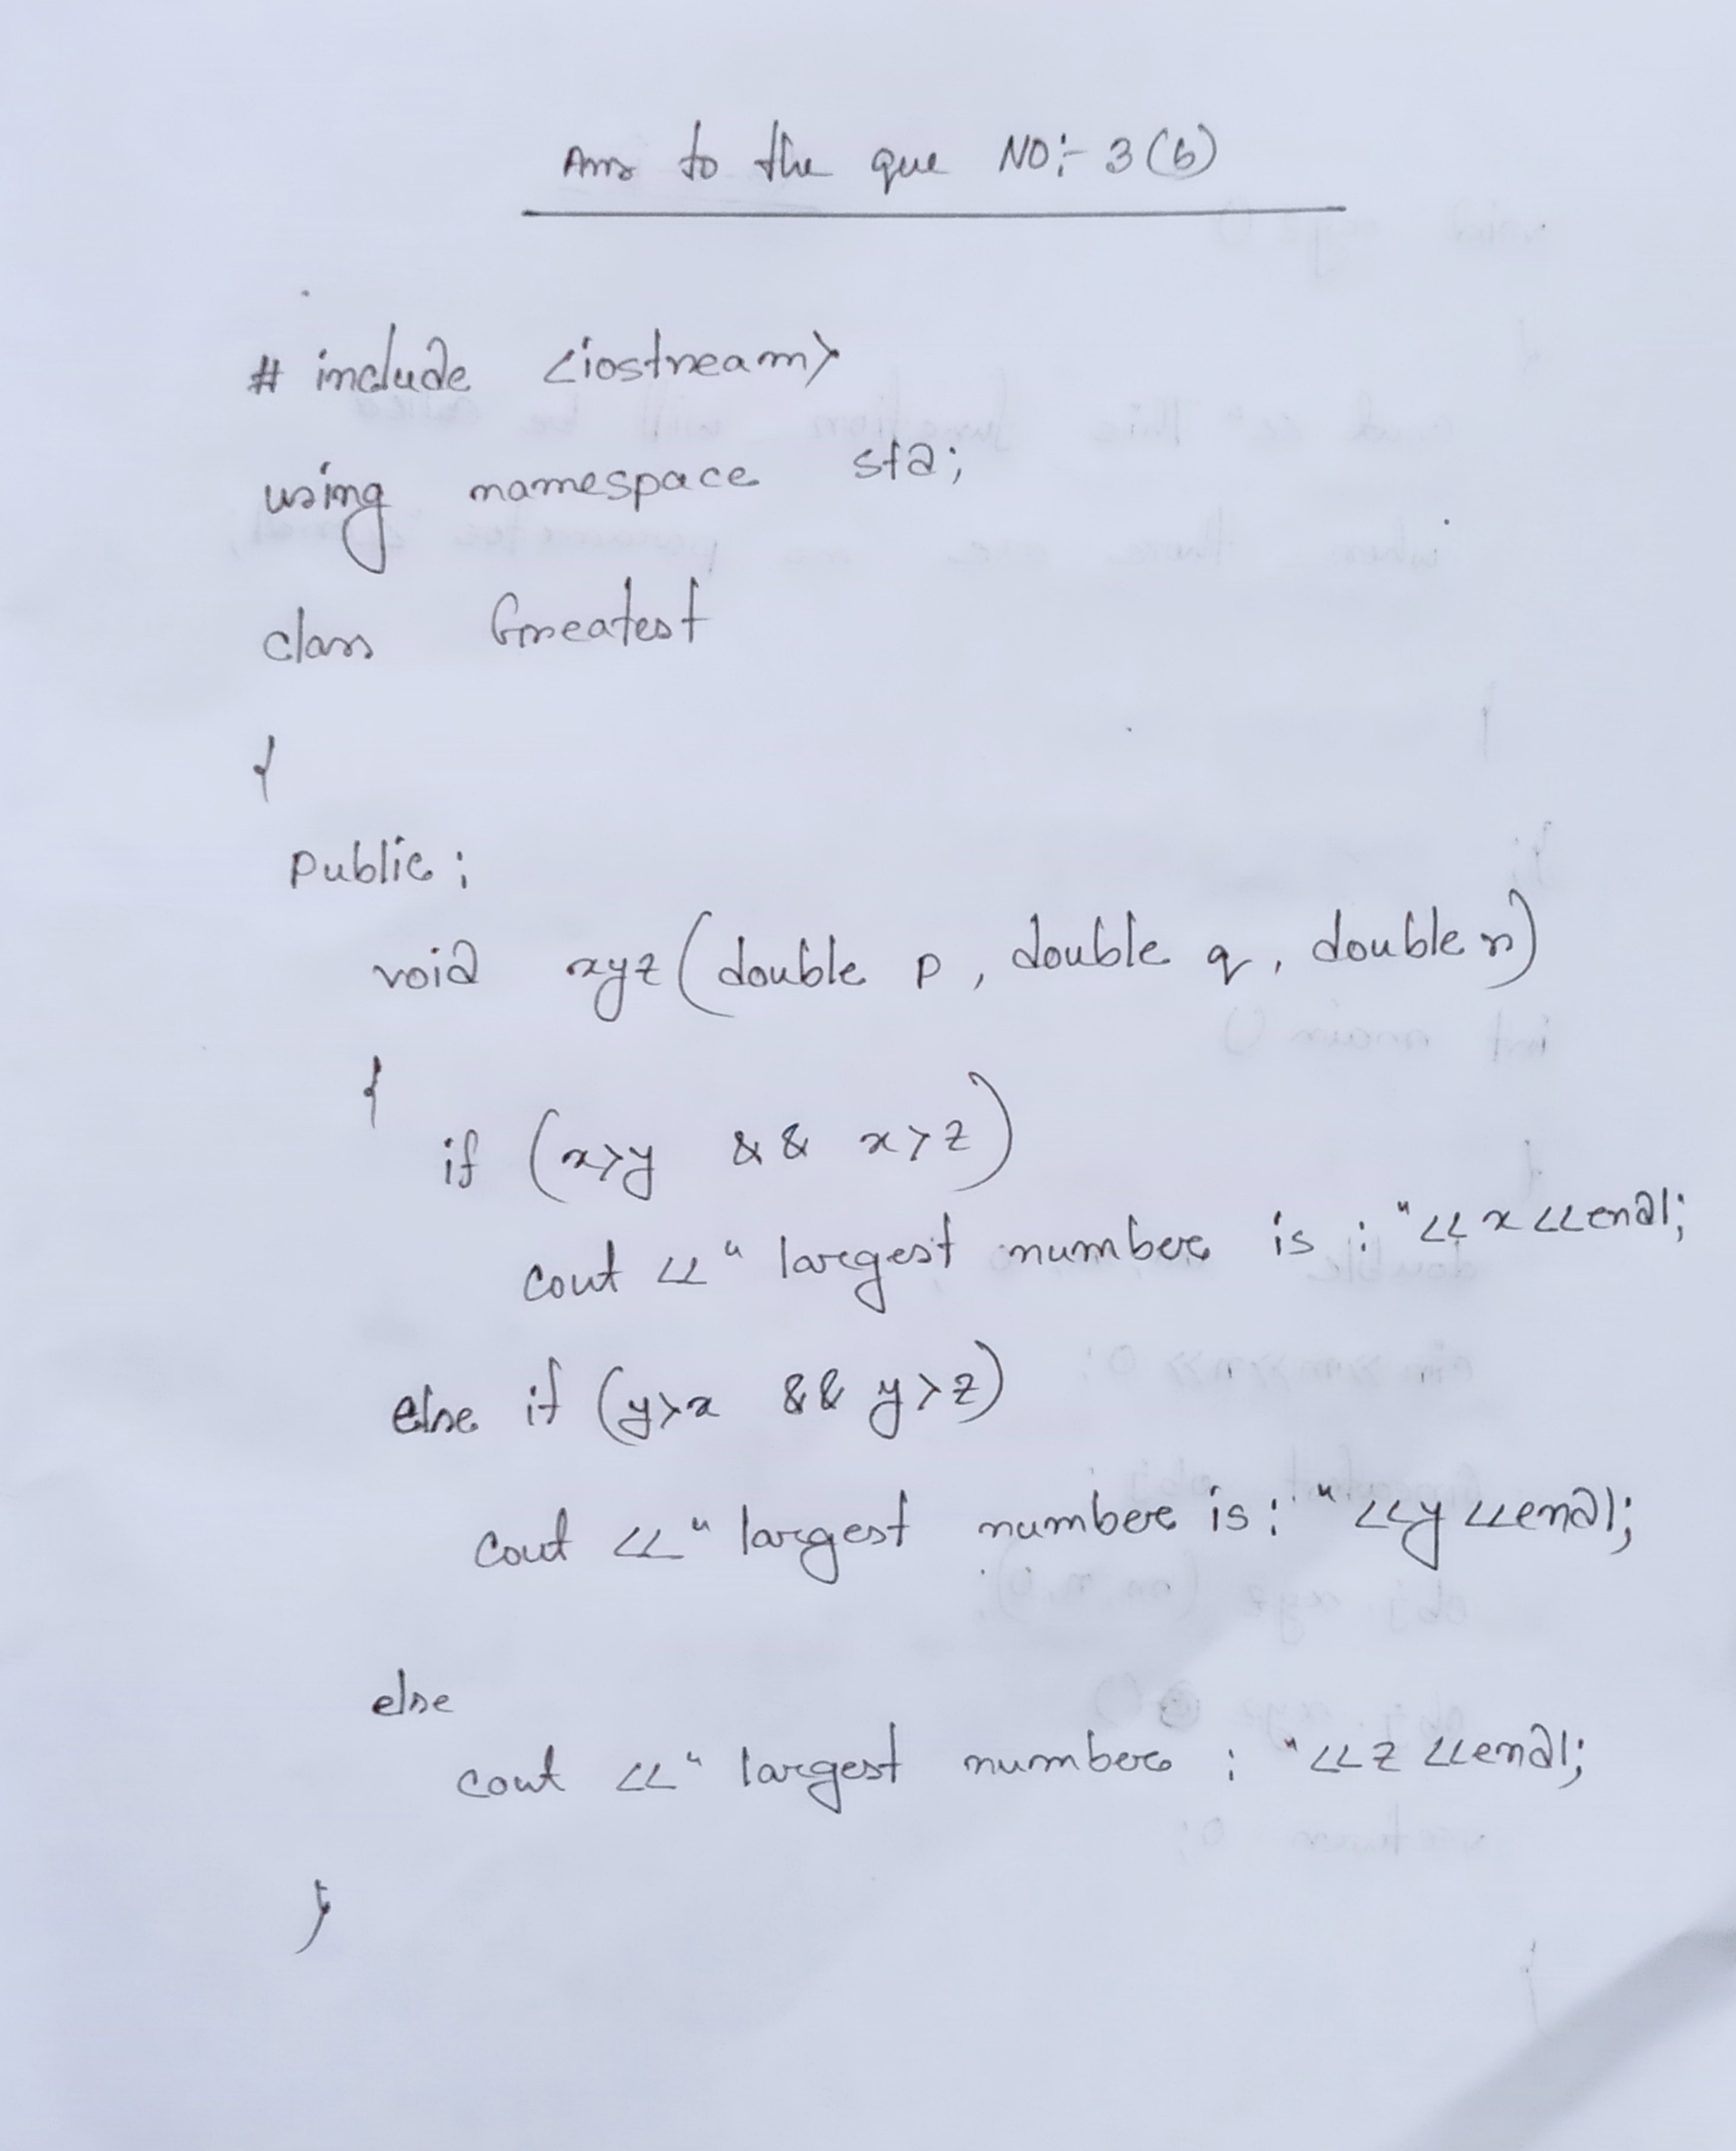 Ans to the que NO:- 3(b)
# include <iostream>
using namespace std;
class Greatest
{
public:
void xyz(double p, double q, double r)
{
if (x>y && x>z)
cout <<" largest number is : "<< x <<endl;
else if (y>x && y>z)
cout <<" largest number is : " <<y <<endl;
else
cout <<" largest number : "<<z <<endl;
}